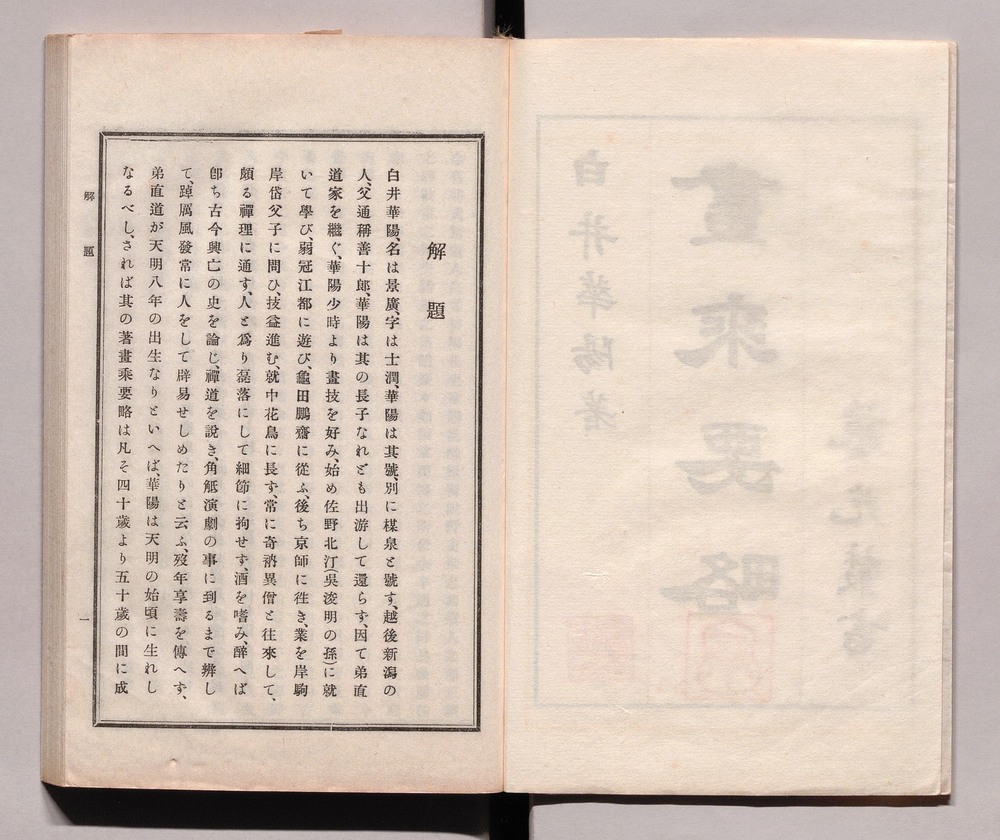 解題
白井華陽、名は景廣、字は士潤、華陽は其號、別に楳泉と號す、越後新潟の
人、父通稱善十郎、華陽は其の長子なれども出游して還らず、因て弟直
道家を繼ぐ、華陽少時より畫技を好み、始め佐野北汀(吳浚明の孫)に就
いて學び、弱冠江都に遊び、龜田鵬齋に從ふ、後ち京師に徃き、業を岸駒
岸岱父子に問ひ、技益進む、就中花鳥に長ず、常に奇衲異僧と往來して、
頗る禪理に通ず、人と爲り磊落にして細節に拘せず、酒を嗜み、醉へば
卽ち古今興亡の史を論じ、禪道を說き、角觝演劇の事に到るまで辨し
て、踔厲風發常に人をして辟易せしめたりと云ふ、歿年享壽を傳へず、
弟直道が天明八年の出生なりといへば、華陽は天明の始頃に生れし
なるべし、されば其の著畫乘要略は凡そ四十歲より五十歲の間に成
解題
一
畫乘要略
白井華陽著